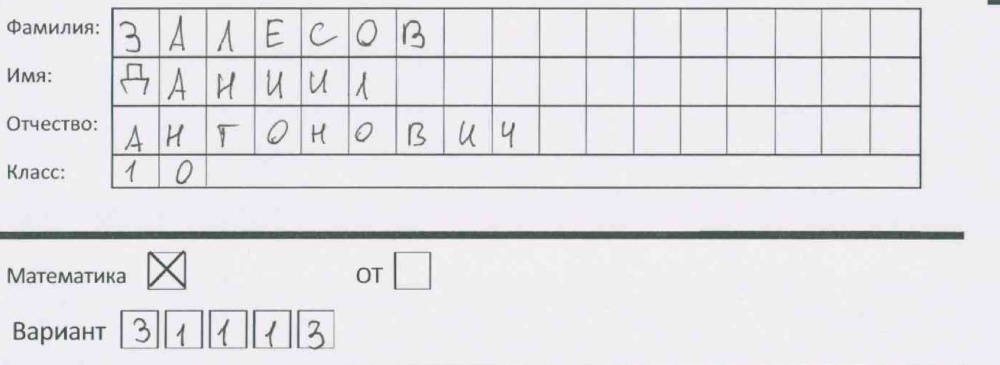 Фамилия: ЗАЛЕСОВ
Имя: ДАНИИЛ
Отчество: АНТОНОВИЧ
Класс: 10
Математика ☒ ОТ ☐
Вариант 31113